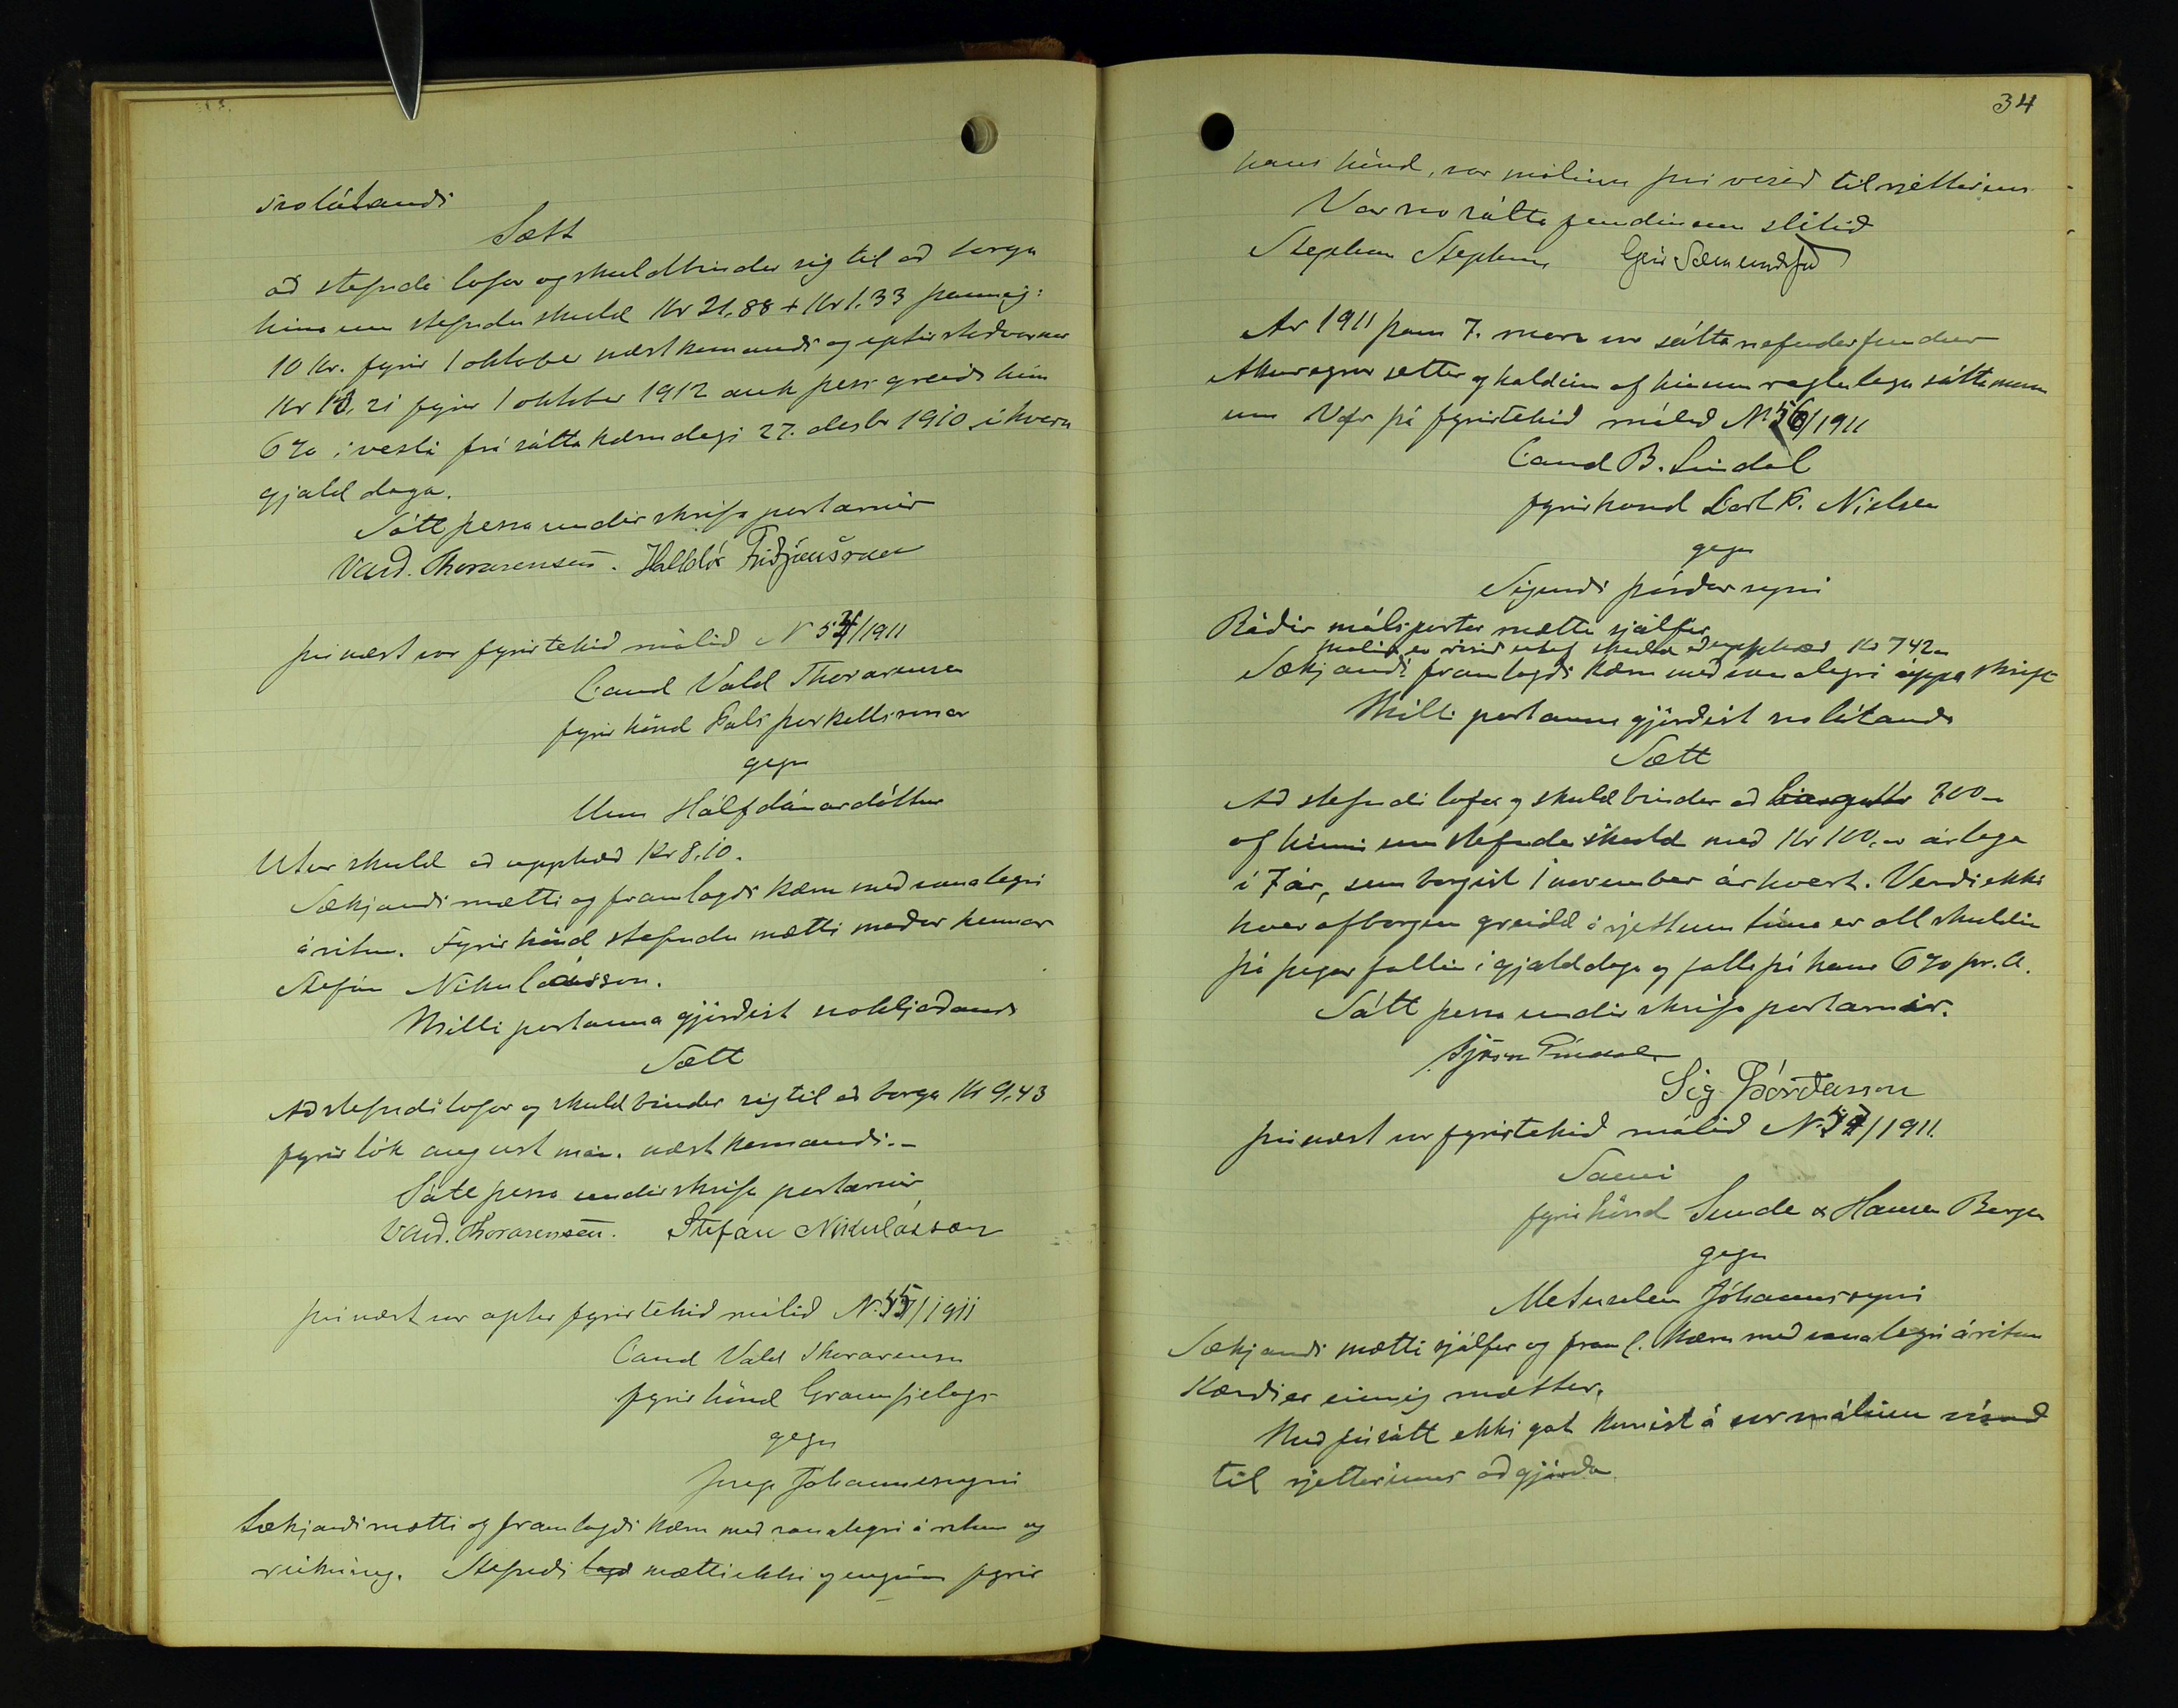 svolátandi
Sætt
að stefndi lofar og skuldbindur sig til að borga
hina um stefndu skuld Kr 21,88 + Kr 1.33 þannig:
10 Kr. fyrir 1 oktober næstkomandi og eptirstöðvarnar
Kr 13,21 fyrir 1 oktober 1912 auk þess greiðir hún
6% i vesti frá sáttakærudegi 27. desbr 1910 í hvern
gjalddaga.
Sátt þessa undirskrifa partarnir
Vald. Thorarensen. Halldór Friðjónsson
því næst var fyrirtekið málið N 54/1911
Cand Vald Thorarensen
fyrir hönd Páls þorkellssonar
gegn
Unu Hálfdánardóttur
Utaf skuld að upphæð Kr 8,10.
Sækjandi mætti og framlagði kæru með vanalegri
áritun. Fyrir hönd stefndu mætti maður hennar
Stefán Nikulásson.
Milli partanna gjörðist svohljóðandi
Sætt
Að stefndi lofar og skuldbindur sig til að borga Kr 9,43
fyrir lok august mán. næstkomandi.-
Sátt þessa undirskrifa partarnir
Vald. Thorarensen. Stefán Nikulásson
því næst var aptur fyrirtekið málið N. 55/1911
Cand Vald Thorarensen
fyrir hönd Gránufjelags
gegn
Jóhannessyni
Sækjandi mætti og framlagði kæru með vanalegri áritun og
reikning. Stefndi lagð mætti ekki og enginn fyrir
34
hans hönd, var málinu því vísað til rjettarins
Var svo sáttafundinum slitið
Stephan Stephensen Geir Sæmundsson
Ar 1911 þann 7. mars var sáttanefndarfundur
Akureyrar settur og haldinn af hinum reglulegu sáttamönn
um Var þá fyrirtekið málið N. 56/1911
Cand B. Lindal
fyrir hond Carl F. Nielsen
gegn
Sigurði þórðarsyni
Báðir málspartar mættu sjálfir
málið er risið utaf skuld að upphæð Kr 742,-
Sækjandi framlagði kæru með vanalegri áppáskrift
Milli partanna gjörðist svolátandi
Sætt
Að stefndi lofar og skuldbindur að borga Kr 700,-
af hinni um stefndu skuld með Kr 100,- árlega
í 7 ár, sem borgist 1 november ár hvert. Verði ekki
hver afborgun greidd á rjettum tíma er öll skuldin
þá þegar fallin í gjalddaga og falla þá hana 6% pr. a.
Sátt þessa undirskrifa partarnir.
Björn Líndal
Sig. Þórðarson
því næst var fyrirtekið málið N. 57/1911.
Sami
fyrir hönd Sunde & Hansen Bergen
gegn
Metusalem Jóhannssyni
Sækjandi mætti sjálfur og framl. kæru með vanalegri áritun
Kærði er einnig mættur.
Með því sátt ekki gat komist á var málinu vísað
til rjettarins aðgjörða